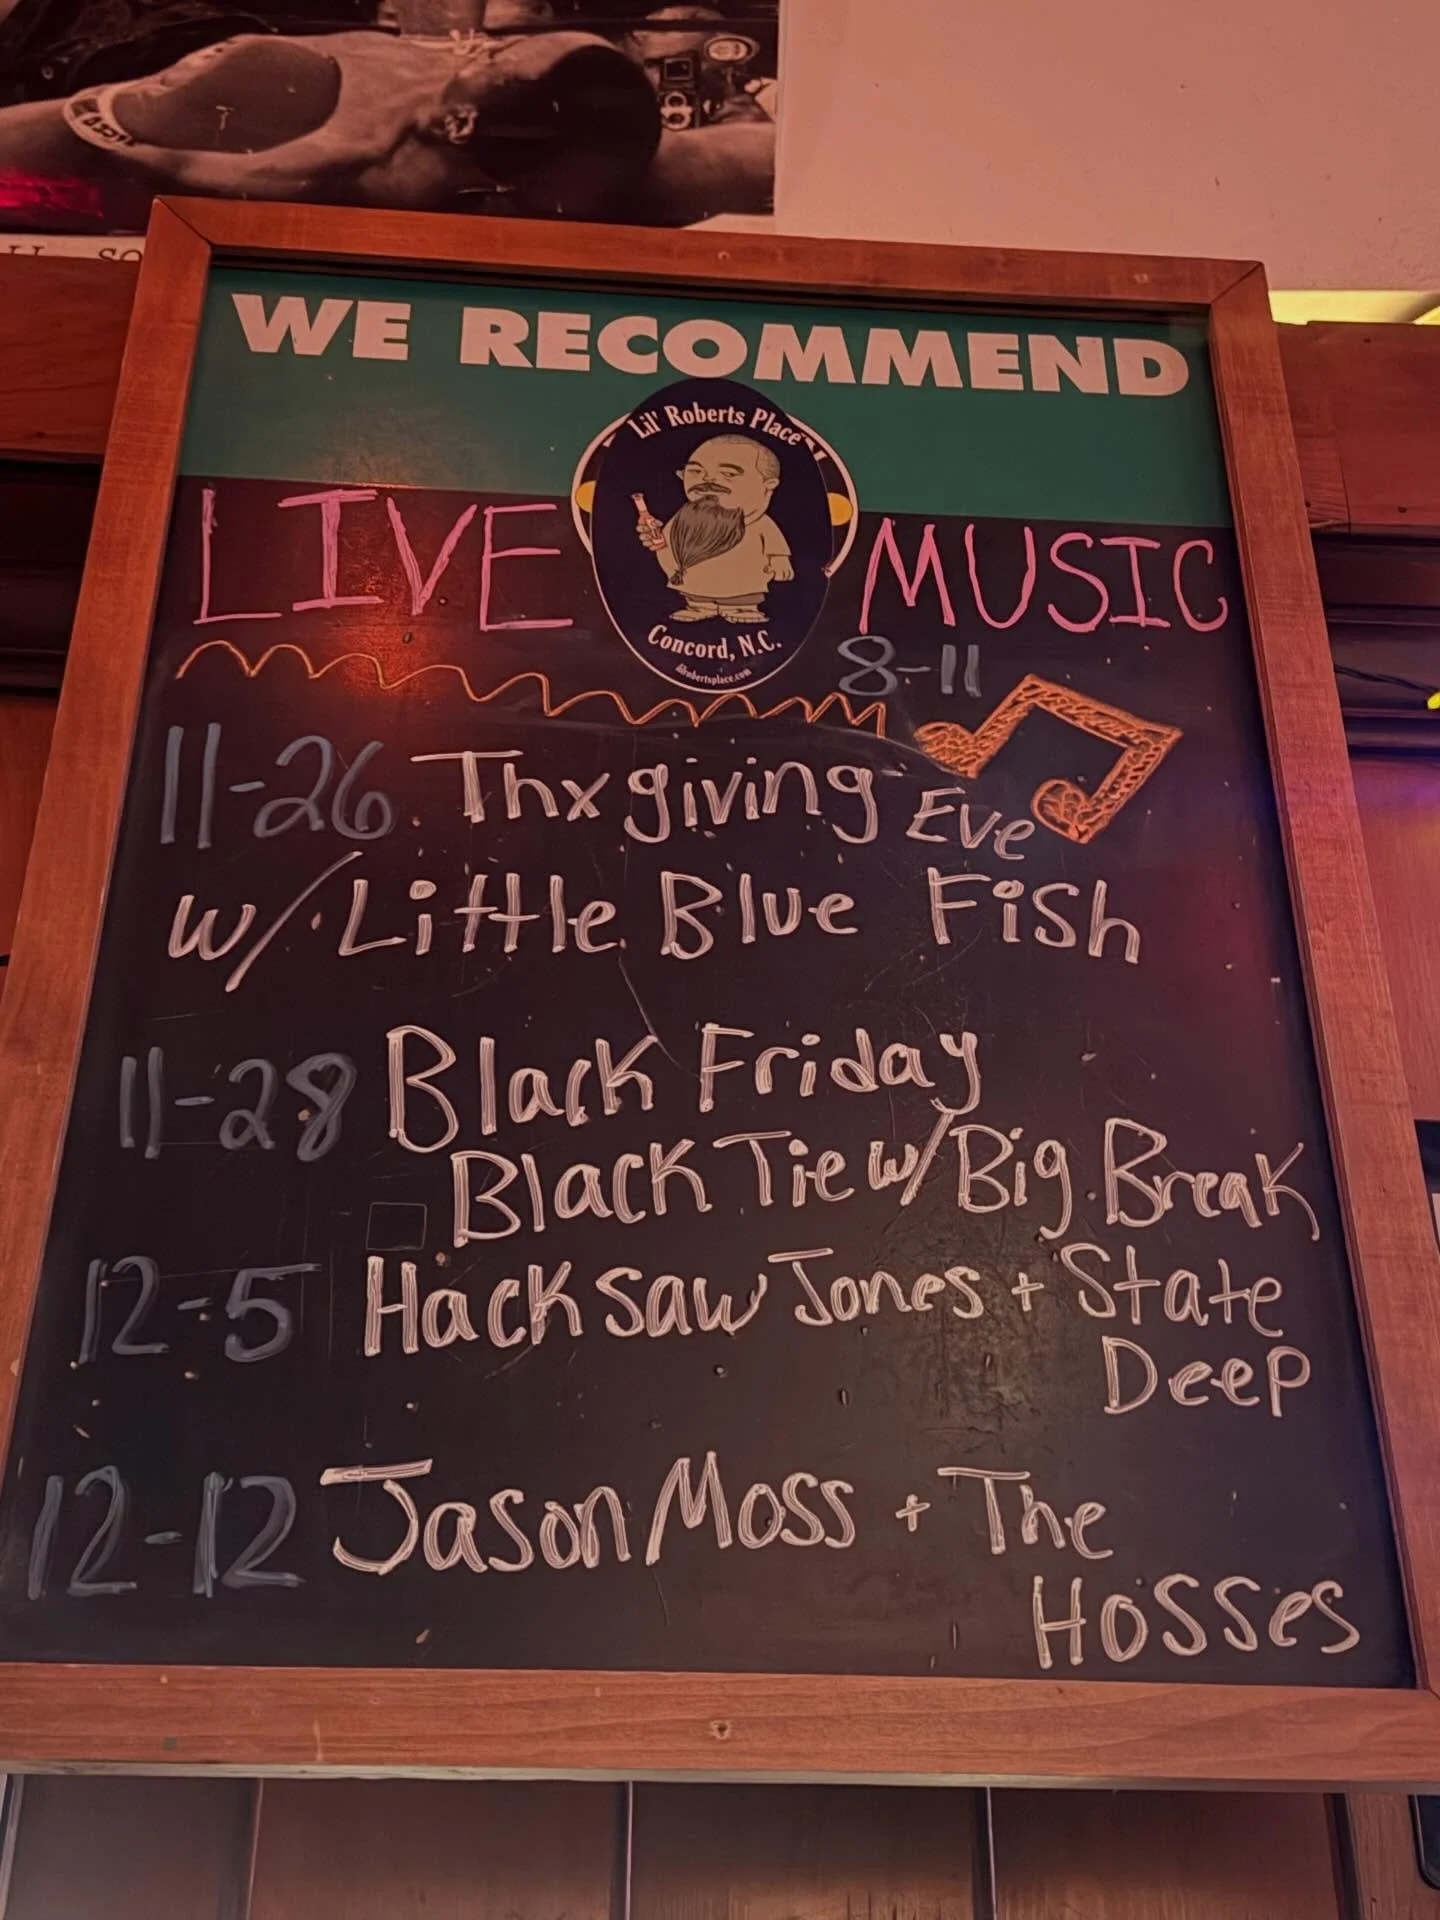 WE RECOMMEND
Lil' Roberts Place
Concord, N.C.
lilrobertsplace.com
LIVE MUSIC
8-11
11-26 Thxgiving Eve
w/ Little Blue Fish
11-28 Black Friday
Black Tie w/ Big Break
12-5 Hacksaw Jones + State
Deep
12-12 Jason Moss + The
Hosses